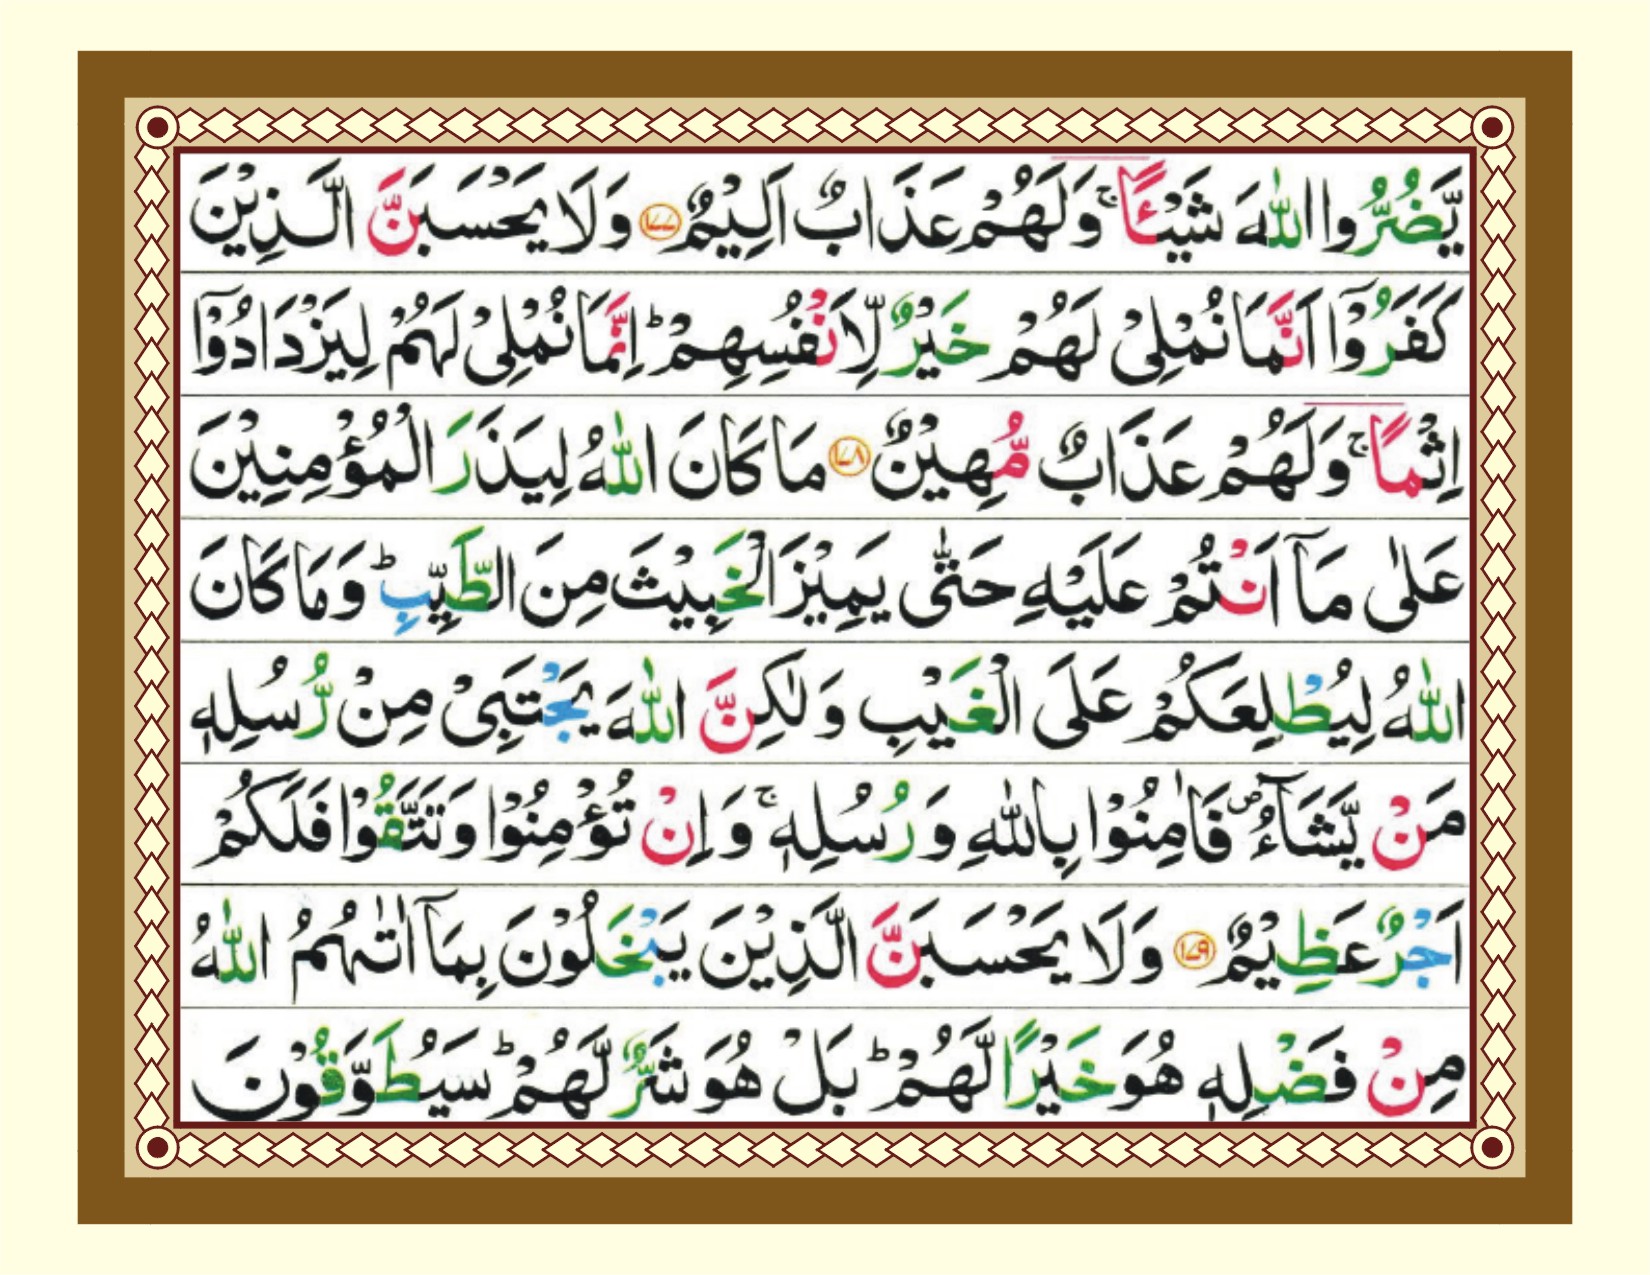 يَّضُرُّوا اللّٰهَ شَيْـًٔا ۚ وَلَهُمْ عَذَابٌ اَلِيْمٌ ﴿۱۷۷﴾ وَلَا يَحْسَبَنَّ الَّذِيْنَ
كَفَرُوْۤا اَنَّمَا نُمْلِىْ لَهُمْ خَيْرٌ لِّاَنْفُسِهِمْ ؕ اِنَّمَا نُمْلِىْ لَهُمْ لِيَزْدَادُوْۤا
اِثْمًا ۚ وَلَهُمْ عَذَابٌ مُّهِيْنٌ ﴿۱۷۸﴾ مَا كَانَ اللّٰهُ لِيَذَرَ الْمُؤْمِنِيْنَ
عَلٰى مَاۤ اَنْتُمْ عَلَيْهِ حَتّٰى يَمِيْزَ الْخَبِيْثَ مِنَ الطَّيِّبِ ؕ وَمَا كَانَ
اللّٰهُ لِيُطْلِعَكُمْ عَلَى الْغَيْبِ وَلٰكِنَّ اللّٰهَ يَجْتَبِىْ مِنْ رُّسُلِهٖ
مَنْ يَّشَآءُ ۪ فَاٰمِنُوْا بِاللّٰهِ وَرُسُلِهٖ ۚ وَاِنْ تُؤْمِنُوْا وَتَتَّقُوْا فَلَكُمْ
اَجْرٌ عَظِيْمٌ ﴿۱۷۹﴾ وَلَا يَحْسَبَنَّ الَّذِيْنَ يَبْخَلُوْنَ بِمَاۤ اٰتٰٮهُمُ اللّٰهُ
مِنْ فَضْلِهٖ هُوَ خَيْرًا لَّهُمْ ؕ بَلْ هُوَ شَرٌّ لَّهُمْ ؕ سَيُطَوَّقُوْنَ